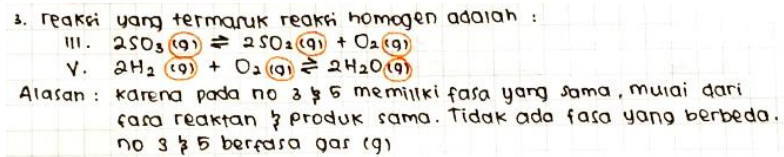 3. reaksi yang termasuk reaksi homogen adalah :
III. 2SO₃ (g) ⇌ 2SO₂ (g) + O₂ (g)
V. 2H₂ (g) + O₂ (g) ⇌ 2H₂O (g)
Alasan : karena pada no 3 & 5 memiliki fasa yang sama, mulai dari
fasa reaktan & produk sama. Tidak ada fasa yang berbeda.
no 3 & 5 berfasa gas (g)